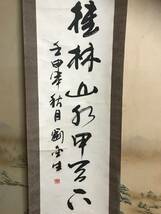 桂林山水甲天下
壬申年秋月劉金生